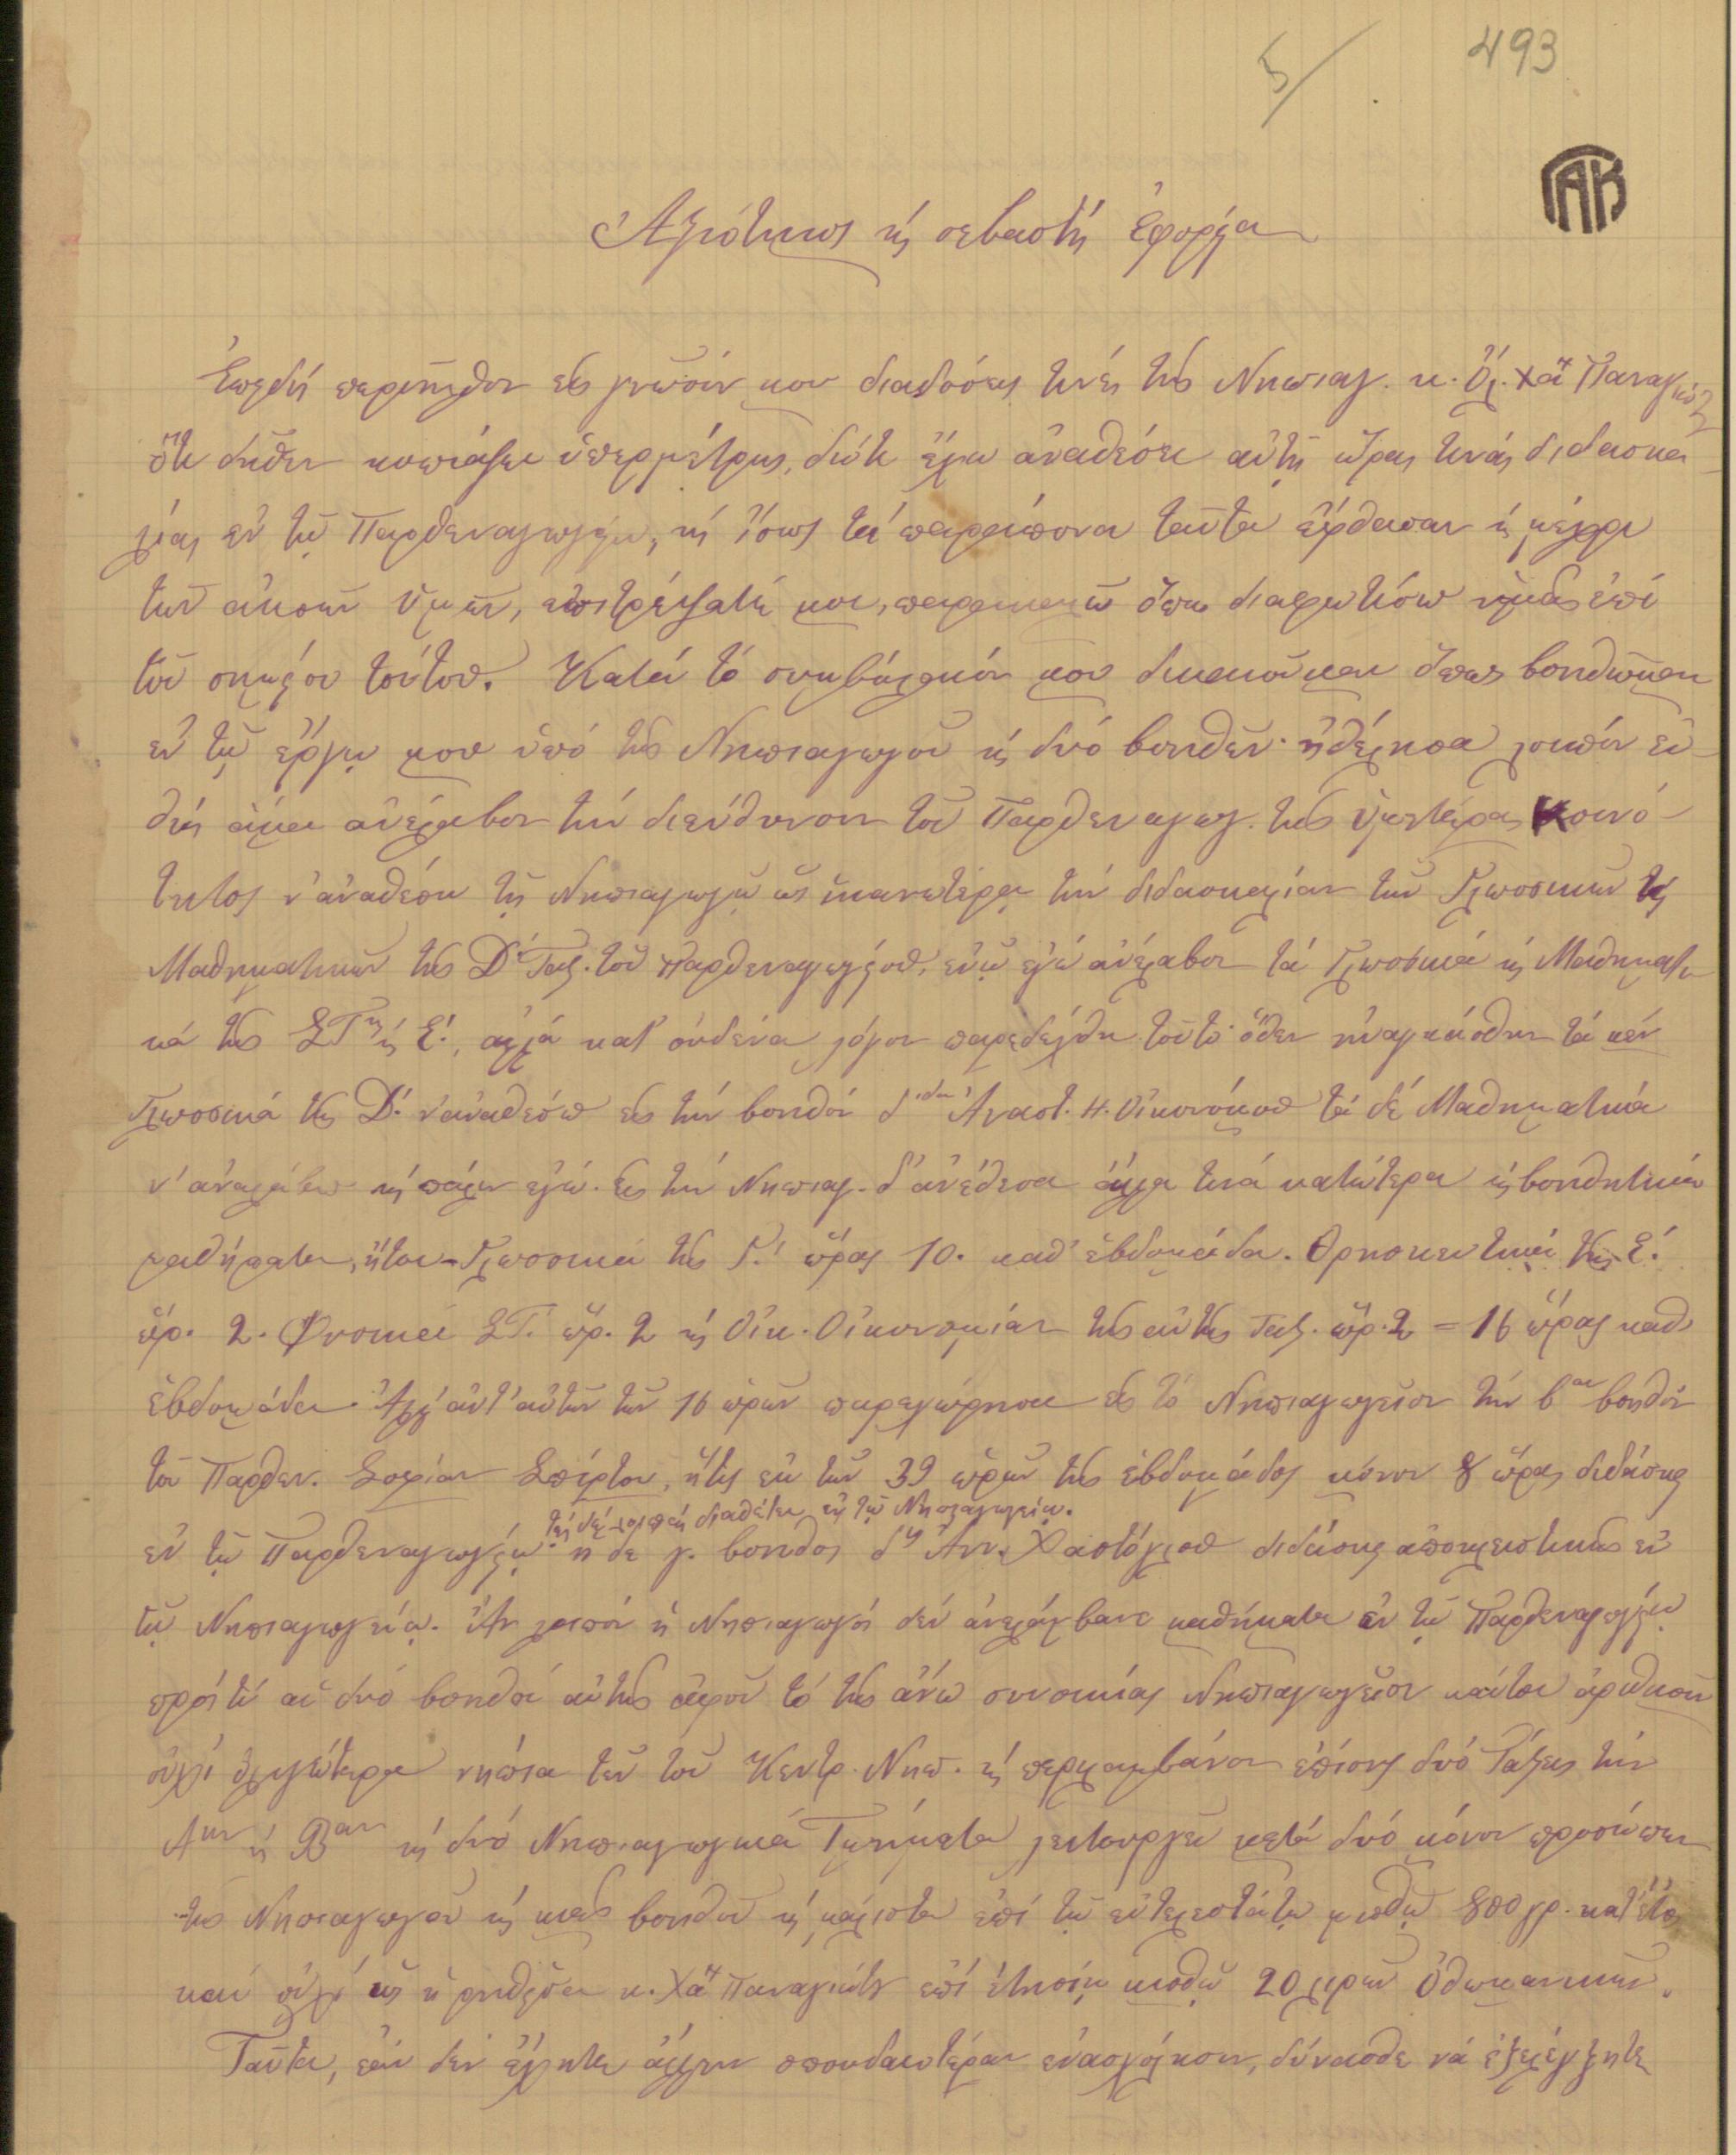 5/ 493
ΓΑΚ
Ἀξιότιμος κ̀ σεβαστὴ Ἐφορεία
Ἐπειδὴ περιῆλθον εἰς γνῶσίν μου διαδόσεις τινὲς τῆς Νηπιαγ. κ. Ὀλ. Χʺ Παναγιώτ
ὅτι δῆθεν κοπιάζει ὑπερμέτρως, διότι ἔχω ἀναθέσει αὐτῇ ὥρας τινὰς διδασκα-
λίας ἐν τῷ Παρθεναγωγείῳ, κ̀ ἴσως τὰ παράπονα ταῦτα ἔφθασαν κ̀ μέχρι
τῶν ἀκοῶν Ὑμῶν, ἐπιτρέψατέ μοι, παρακαλῶ ὅπως διαφωτίσω ὑμᾶς ἐπὶ
τοῦ σημείου τούτου. Κατὰ τὸ συμβόλαιόν μου δικαιοῦμαι ὅπως βοηθῶμαι
ἐν τῷ ἔργῳ μου ὑπὸ τῆς Νηπιαγωγοῦ κ̀ δύο βοηθῶν· ἠθέλησα λοιπὸν εὐ-
θὺς ἅμα ἀνέλαβον τὴν διεύθυνσιν τοῦ Παρθεναγωγ. τῆς Ὑμετέρας Κοινό-
τητος ν' ἀναθέσω τῇ Νηπιαγωγῷ ὡς ἱκανωτέρᾳ τὴν διδασκαλίαν τῶν Γλωσσικῶν κ̀
Μαθηματικῶν τῆς Δ' Τάξ. τοῦ Παρθεναγωγείου, ἐνῷ ἐγὼ ἀνέλαβον τὰ Γλωσσικὰ κ̀ Μαθηματι-
κὰ τῆς ΣΤʹⁿˢ κ̀ Ε', ἀλλὰ κατ' οὐδένα λόγον παρεδέχθη τοῦτο· ὅθεν ἠναγκάσθην τὰ μὲν
Γλωσσικὰ τῆς Δ'. ν' ἀναθέσω εἰς τὴν βοηθὸν δ^ίδα Ἀναστ. Η. Οἰκονόμου τὰ δὲ Μαθηματικὰ
ν' ἀναλάβω κ̀ πάλιν ἐγώ. Εἰς τὴν Νηπιαγ. δ' ἀνέθεσα ἄλλα τινὰ κατώτερα κ̀ βοηθητικὰ
μαθήματα, ἤτοι - Γλωσσικὰ τῆς Γ.' ὥρας 10. καθ' ἑβδομάδα. Θρησκευτικὰ τῆς Ε.'
ὥρ. 2. Φυσικὰ ΣΤ.' ὥρ. 2 κ̀ Οἰκ. Οἰκονομίαν τῆς αὐτῆς Τάξ. ὥρ. 2 = 16 ὥρας καθ'
ἑβδομάδα. Ἀλλ' ἀντ' αὐτῶν τῶν 16 ὡρῶν παρεχώρησα εἰς τὸ Νηπιαγωγεῖον τὴν β^αν βοηθὸν
τοῦ Παρθεν. Σοφίαν Σπύρτου, ἥτις ἐκ τῶν 39 ὡρῶν τῆς ἑβδομάδος μόνον 8 ὥρας διδάσκει
τὰς δὲ λοιπὰς διαθέτει ἐν τῷ Νηπιαγωγείῳ.
ἐν τῷ Παρθεναγωγείῳ· ἡ δὲ γ. βοηθὸς δ^ὶς Ἀν. Χαστόγλου διδάσκει ἀποκλειστικῶς ἐν
τῷ Νηπιαγωγείῳ. Ἂν λοιπὸν ἡ Νηπιαγωγὸς δὲν ἀνελάμβανε μαθήματα ἐν τῷ Παρθεναγωγείῳ
πρὸς τί αἱ δύο βοηθοὶ αὐτῆς ἀφοῦ τὸ τῆς ἄνω συνοικίας Νηπιαγωγεῖον καίτοι ἀριθμοῦν
οὐχὶ ὀλιγώτερα νήπια τῶν τοῦ Κεντρ. Νηπ. κ̀ περιλαμβάνον ἐπίσης δύο Τάξεις τὴν
Α^ην κ̀ Β^αν κ̀ δύο Νηπιαγωγικὰ Τμήματα λειτουργεῖ μετὰ δύο μόνον προσώπων
τῆς Νηπιαγωγοῦ κ̀ μιᾶς βοηθοῦ κ̀ μάλιστα ἐπὶ τῷ εὐτελεστάτῳ μισθῷ 800 γρ. κατ' ἔτος
καὶ οὐχὶ ὡς ἡ ῥηθεῖσα κ. Χʺ Παναγιώτ ἐπὶ ἐτησίῳ μισθῷ 20 λιρῶν Ὀθωμανικῶν.
Ταῦτα, ἐὰν δὲν ἔχητε ἄλλην σπουδαιοτέραν ἐνασχόλησιν, δύνασθε νὰ ἐξελέγξητε